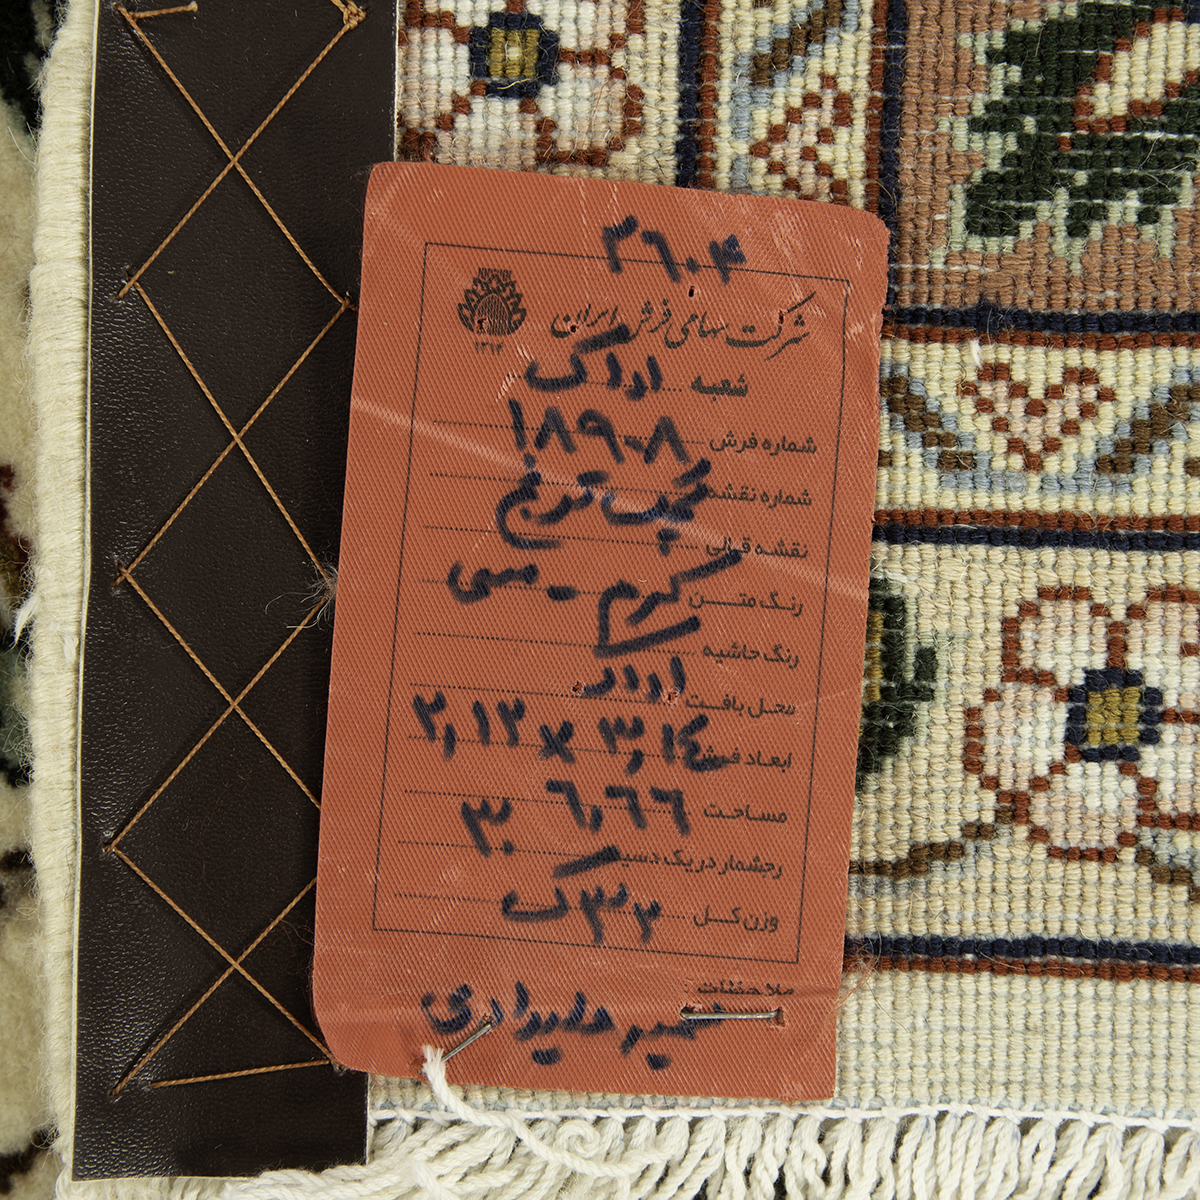 ۲۶۰۴
شرکت سهامی فرش ایران
۱۳۱۴
شعبه اراک
شماره فرش ۱۸۹۰۸
شماره نقشه
نقشه قالی ترنج
رنگ متن کرم - مسی
رنگ حاشیه
محل بافت اراک
ابعاد فرش ۲٫۱۲ × ۳٫۱۴
مساحت ۶٫۶۶
رجشمار در یک دست ۳۰
وزن کل
ملاحظات :